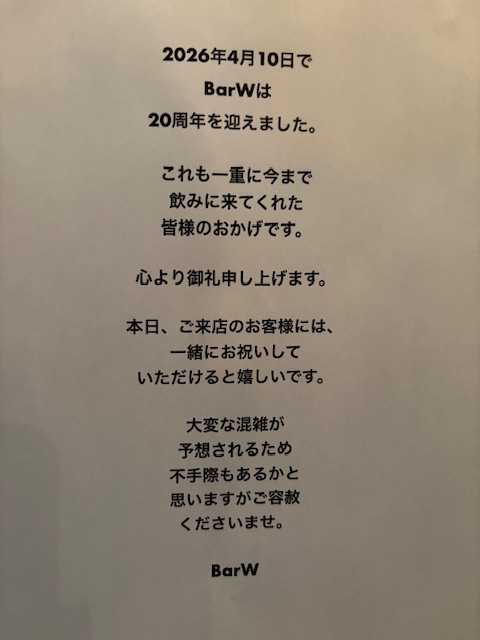 2026年4月10日で
BarWは
20周年を迎えました。
これも一重に今まで
飲みに来てくれた
皆様のおかげです。
心より御礼申し上げます。
本日、ご来店のお客様には、
一緒にお祝いして
いただけると嬉しいです。
大変な混雑が
予想されるため
不手際もあるかと
思いますがご容赦
くださいませ。
BarW